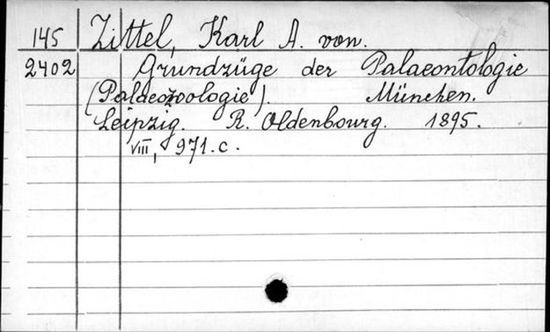 145 Zittel, Karl A. von.
2402 Grundzüge der Palaeontologie
(Palaeozoologie). München.
Leipzig. R. Oldenbourg. 1895.
VIII, 971.c.